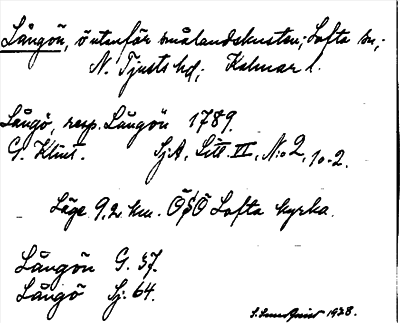 Långön, ö utanför smålandskusten; Lofta sn,
N. Tjusts hd; Kalmar l.
Långö, resp. Långön 1789.
G. Klint. SjA, Litt. II, N:o 2, 10-2.
Läge 9,2 km. ÖSÖ Lofta kyrka.
Långön G. 37.
Långö Sj. 64.
1928.